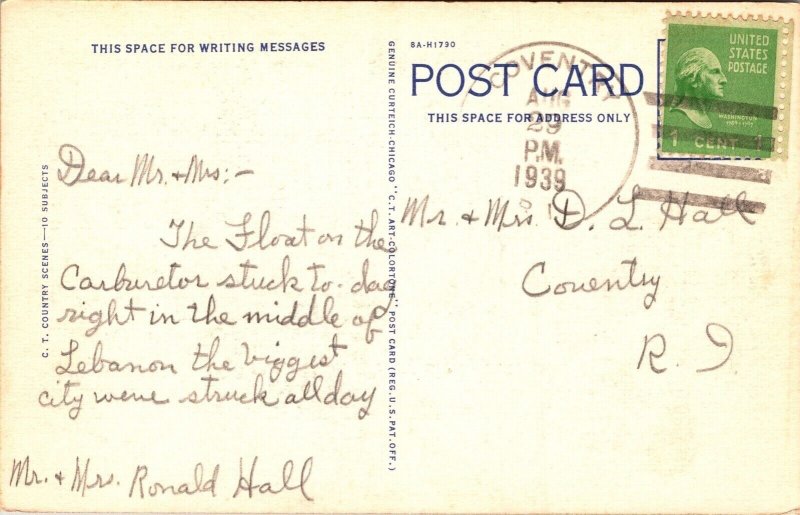 THIS SPACE FOR WRITING MESSAGES
Dear Mr. + Mrs:-
The Float on the
Carburetor stuck to-day
right in the middle of
Lebanon the biggest
city weve struck all day
Mr. + Mrs. Ronald Hall
C. T. COUNTRY SCENES—10 SUBJECTS
GENUINE CURTEICH-CHICAGO "C. T. ART-COLORTONE" POST CARD (REG. U. S. PAT. OFF.)
8A-H1790
POST CARD
THIS SPACE FOR ADDRESS ONLY
COVENTRY
AUG
29
P.M.
1939
R.I.
UNITED
STATES
POSTAGE
WASHINGTON
1789-1797
1 CENT 1
Mr. + Mrs. D. L. Hall
Coventry
R. I.